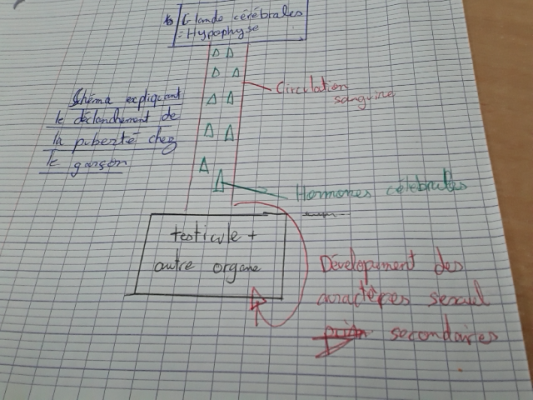 Glande cérébrales
: Hypophyse
Circulation
sanguine
Schéma expliquant
le déclanchement de
la puberté chez
le garçon
Hormones célébralles
testicule +
autre organe
Dévelopement des
caractères sexuel
secondaires